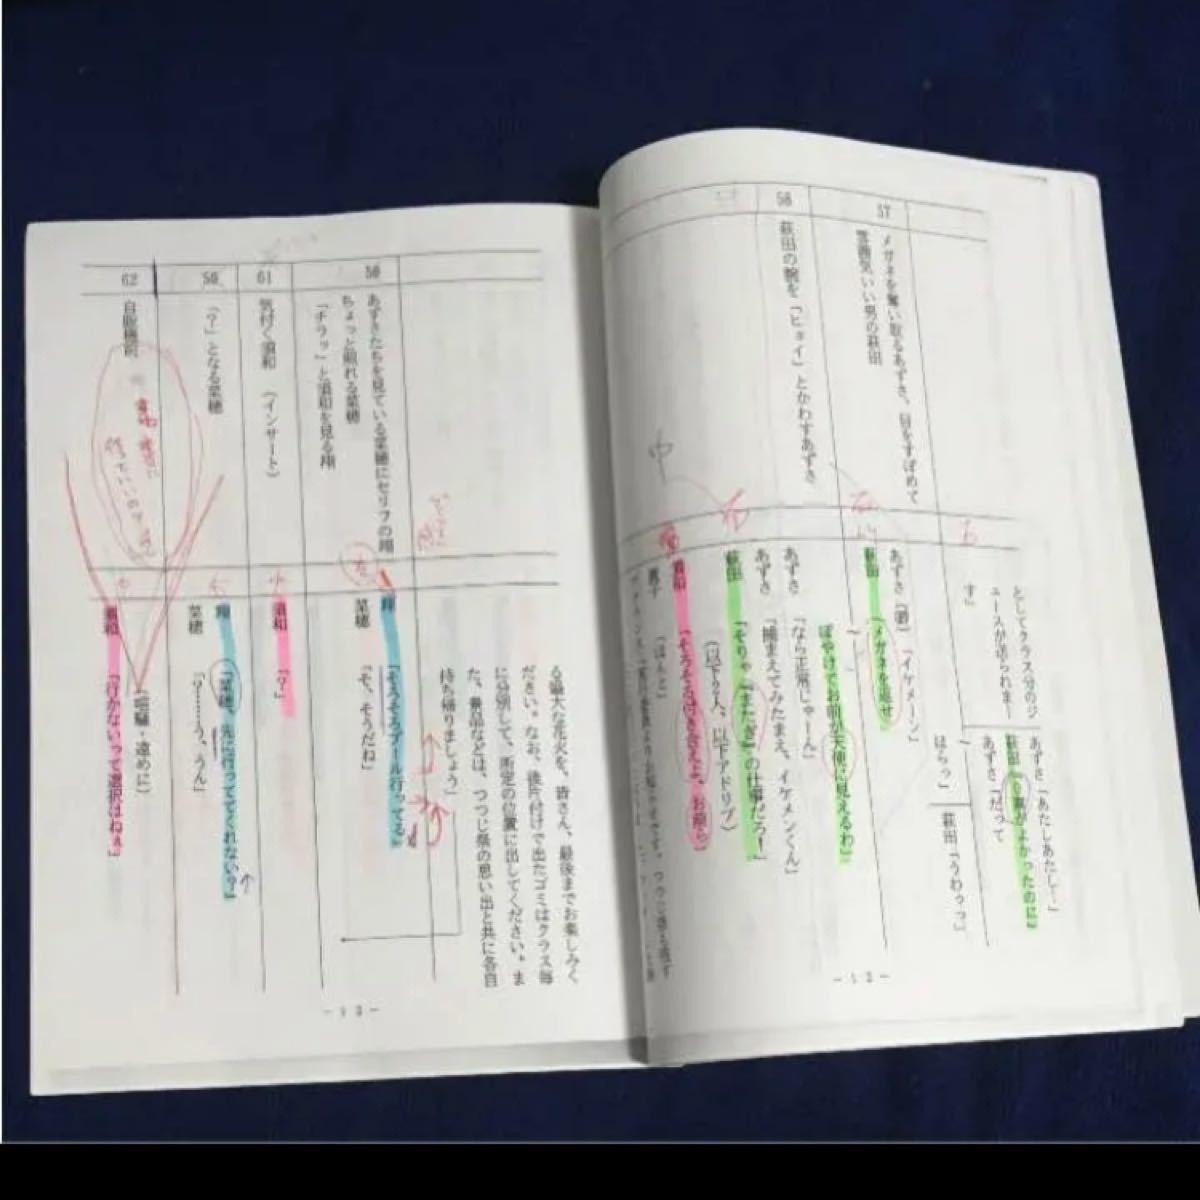 57
メガネを奪い取るあずさ。目をすぼめて
雰囲気いい男の萩田
58
萩田の腕を「ヒョイ」とかわすあずさ
中
右
としてクラス分のジ
ュースが送られまー
す」
あずさ「あたしあたしー」
萩田「
がよかったのに」
あずさ「だって
ほらっ」
萩田「うわっっ」
あずさ(爵)「イケメーン」
萩田「メガネを返せ
~
ぼやけてお前が天使に見えるわ」
あずさ「なら正常じゃーん」
あずさ「捕まえてみたまえ、イケメンくん」
萩田「そりゃ『またぎ』の仕事だろ!」
(以下2人、以下アドリブ)
須和「そろそろ付き合えよ、お前ら」
男子「ほんと」
-12-
る盛大な花火を、皆さん、最後までお楽しみく
ださい。なお、後片付けで出たゴミはクラス毎
に分別して、所定の位置に出してください。ま
た、景品などは、つつじ祭の思い出と共に各自
持ち帰りましょう」
59
あずさたちを見ている菜穂にセリフの翔
ちょっと照れる菜穂
「チラッ」と須和を見る翔
翔「そろそろプール行ってる」
菜穂「そ、そうだね」
61
気付く須和 (インサート)
須和「?」
59
「?」となる菜穂
翔「菜穂、先に行っててくれない?」
菜穂「?……う、うん」
62
自販機前
(喧騒・遠めに)
須和「行かないって選択はねぇ」
-13-